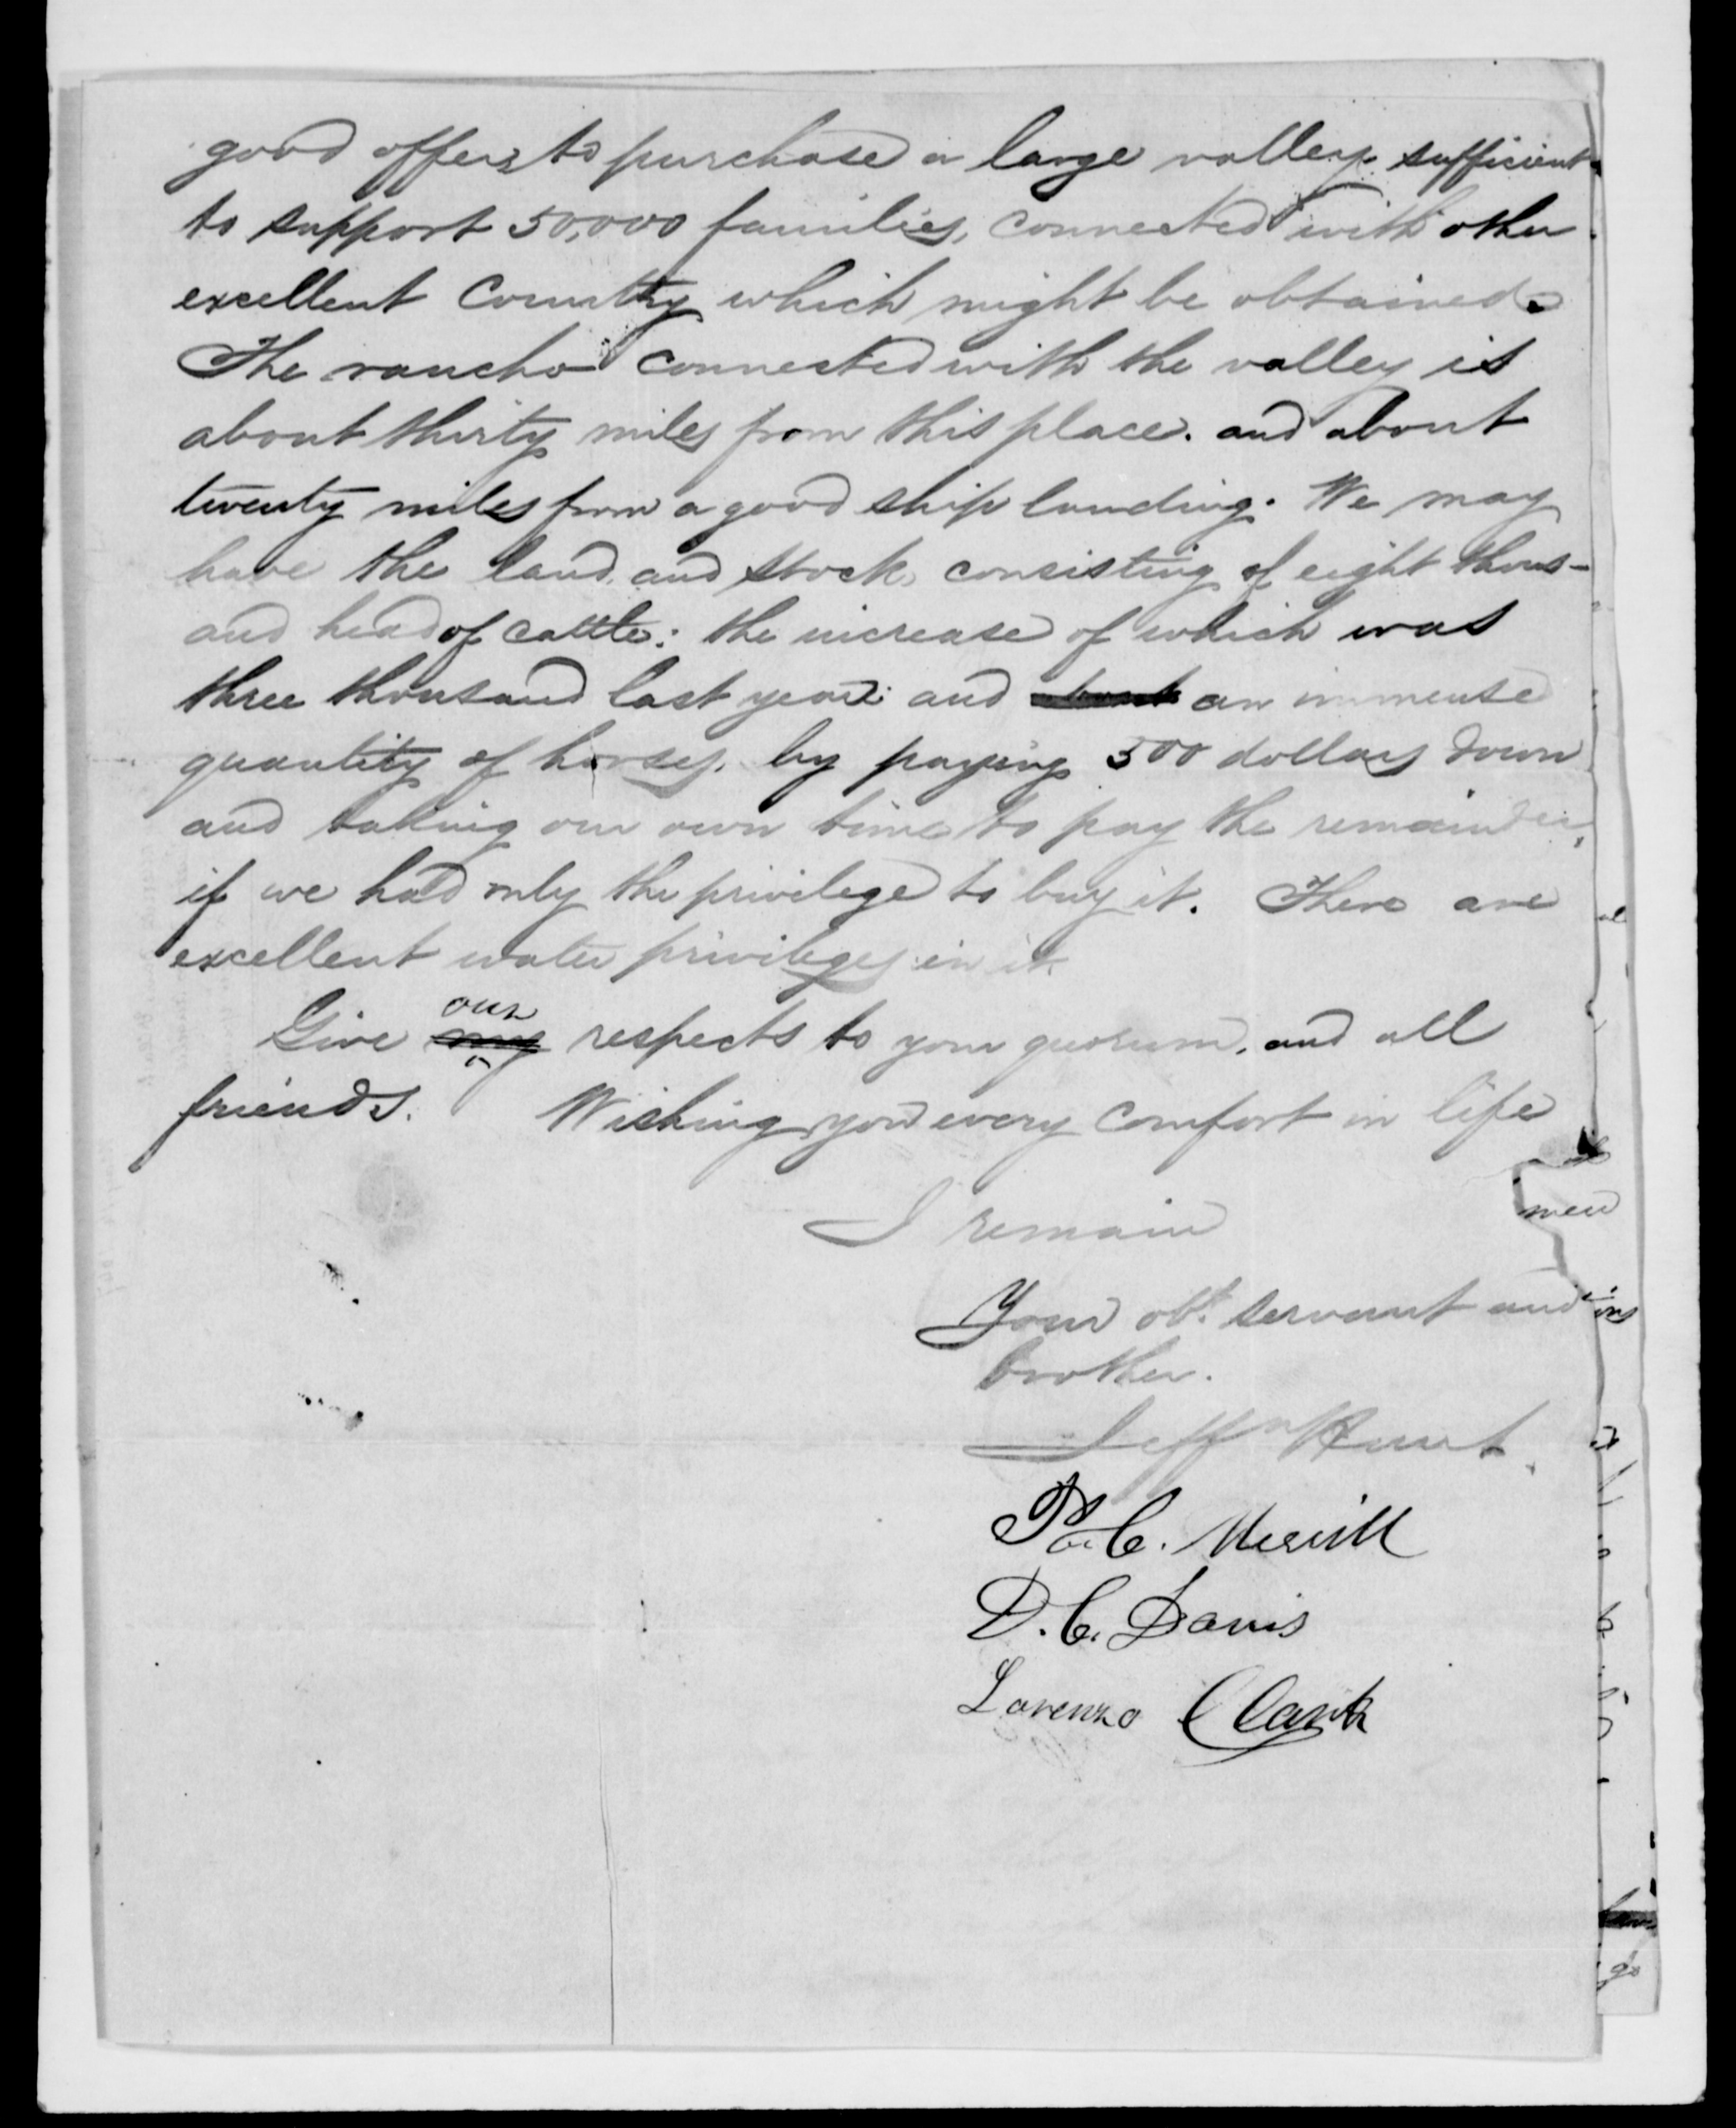 good offers to purchase a large valley sufficient
to support 50,000 families, connected with other
excellent Country which might be obtained.
The rancho connected with the valley is
about thirty miles from this place. and about
twenty miles from a good ship landing. We may
have the land, and stock, consisting of eight thous-
and head of cattle: the increase of which was
three thousand last year: and an immense
quantity of horses, by paying 500 dollars down
and taking our own time to pay the remainder,
if we had only the privilege to buy it. There are
excellent water privileges in it
our
Give my respects to your quorum, and all
friends. Wishing you every comfort in life
I remain
men
Your obt. servant and
brother.
Jeffn Hunt.
P. C. Merrill
D. C. Davis
Lorenzo Clark
go